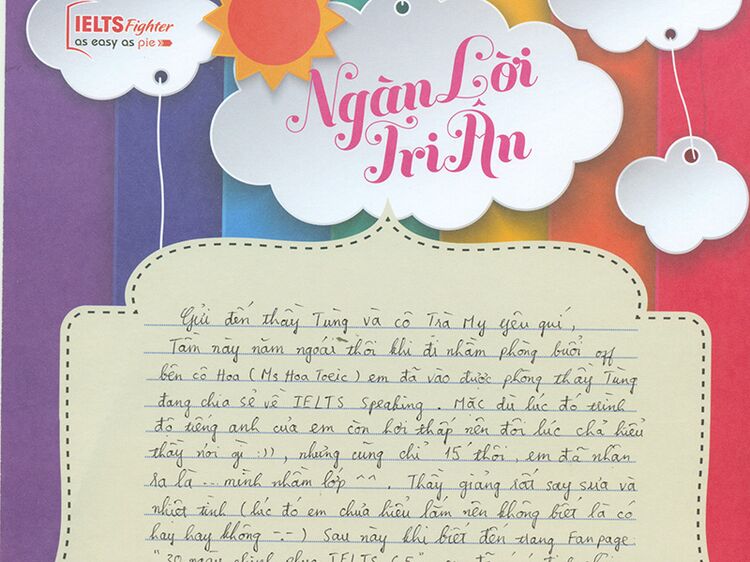 IELTS Fighter
as easy as pie
Ngàn Lời
Tri Ân
Gửi đến thầy Tùng và cô Trà My yêu quí,
Tầm này năm ngoái thôi khi đi nhầm phòng buổi off
bên cô Hoa (Ms Hoa Toeic) em đã vào được phòng thầy Tùng
đang chia sẻ về IELTS Speaking. Mặc dù lúc đó trình
độ tiếng anh của em còn hơi thấp nên đôi lúc chả hiểu
thầy nói gì :)), nhưng cũng chỉ 15' thôi em đã nhận
ra là ... mình nhầm lớp ^^. Thầy giảng rất say sưa và
nhiệt tình (lúc đó em chưa hiểu lắm nên không biết là có
hay hay không -.-) Sau này khi biết đến trang Fanpage
"30 ngày chinh phục IELTS 6.5"